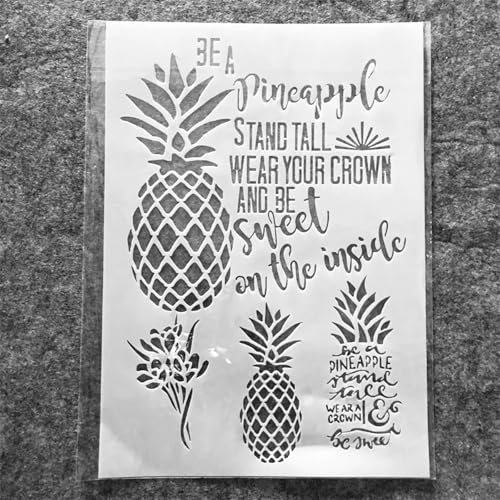 BE A
Pineapple
STAND TALL
WEAR YOUR CROWN
AND BE
sweet
on the inside
be a
PINEAPPLE
stand
tall
WEAR A
CROWN
&
be swee